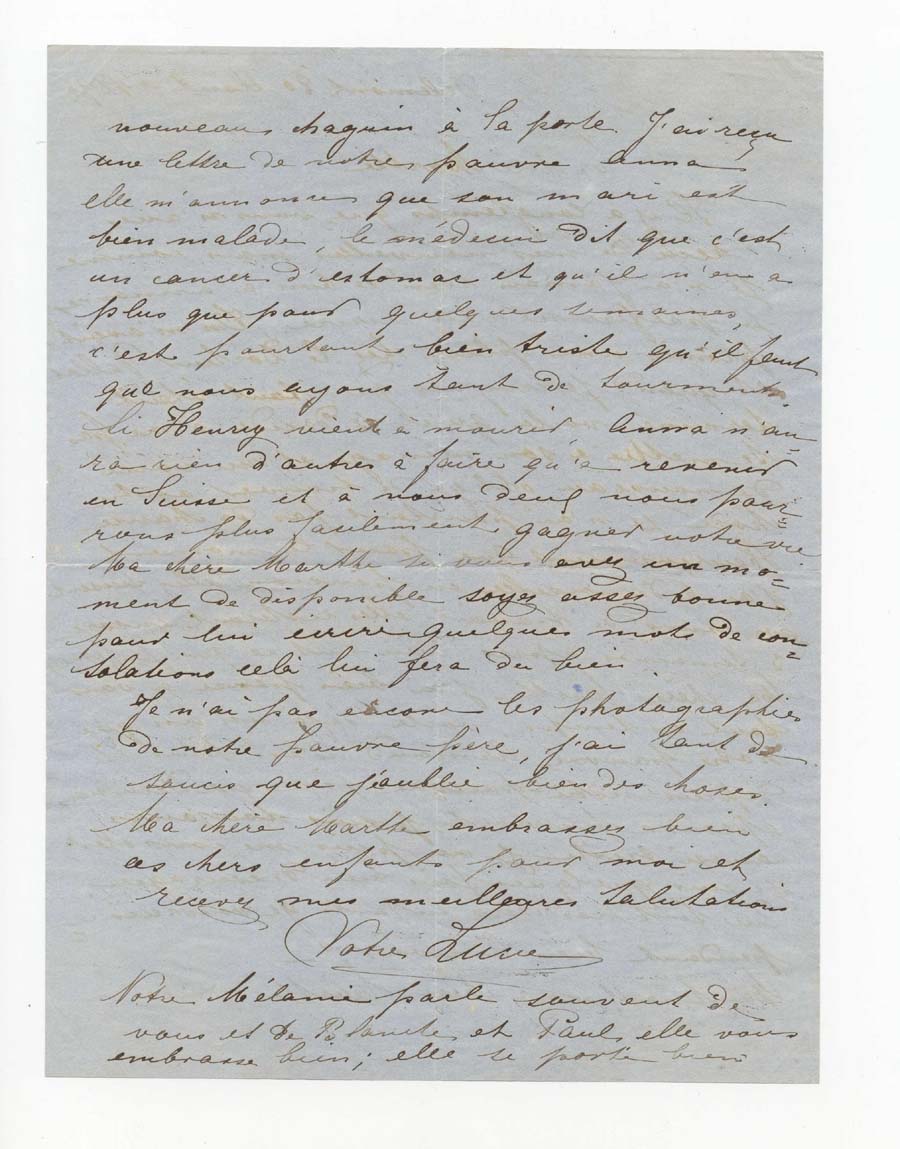 nouveau chagrin à la porte. J'ai reçu
une lettre de notre pauvre Anna
elle m'annonce que son mari est
bien malade, le médecin dit que c'est
un cancer d'estomac et qu'il n'en a
plus que pour quelques semaines,
c'est pourtant bien triste qu'il faut
que nous ayons tant de tourments.
Si Henry vient à mourir, Anna n'au=
ra rien d'autres à faire qu'a revenir
en Suisse et à nous deux nous pour=
rons plus facilement gagner notre vie
Ma chère Marthe si vous avez un mo=
ment de disponible soyes asses bonne
pour lui écrire quelques mots de con=
solations celà lui fera du bien
Je n'ai pas encore les photographies
de notre pauvre père, j'ai tant de
soucis que j'oublie bien des choses.
Ma chère Marthe embrasses bien
ces chers enfants pour moi et
recevez mes meilleures salutations
Votre Lucie
Notre Mélanie parle souvent de
vous et de Blanche et Paul, elle vous
embrasse bien; elle se porte bien